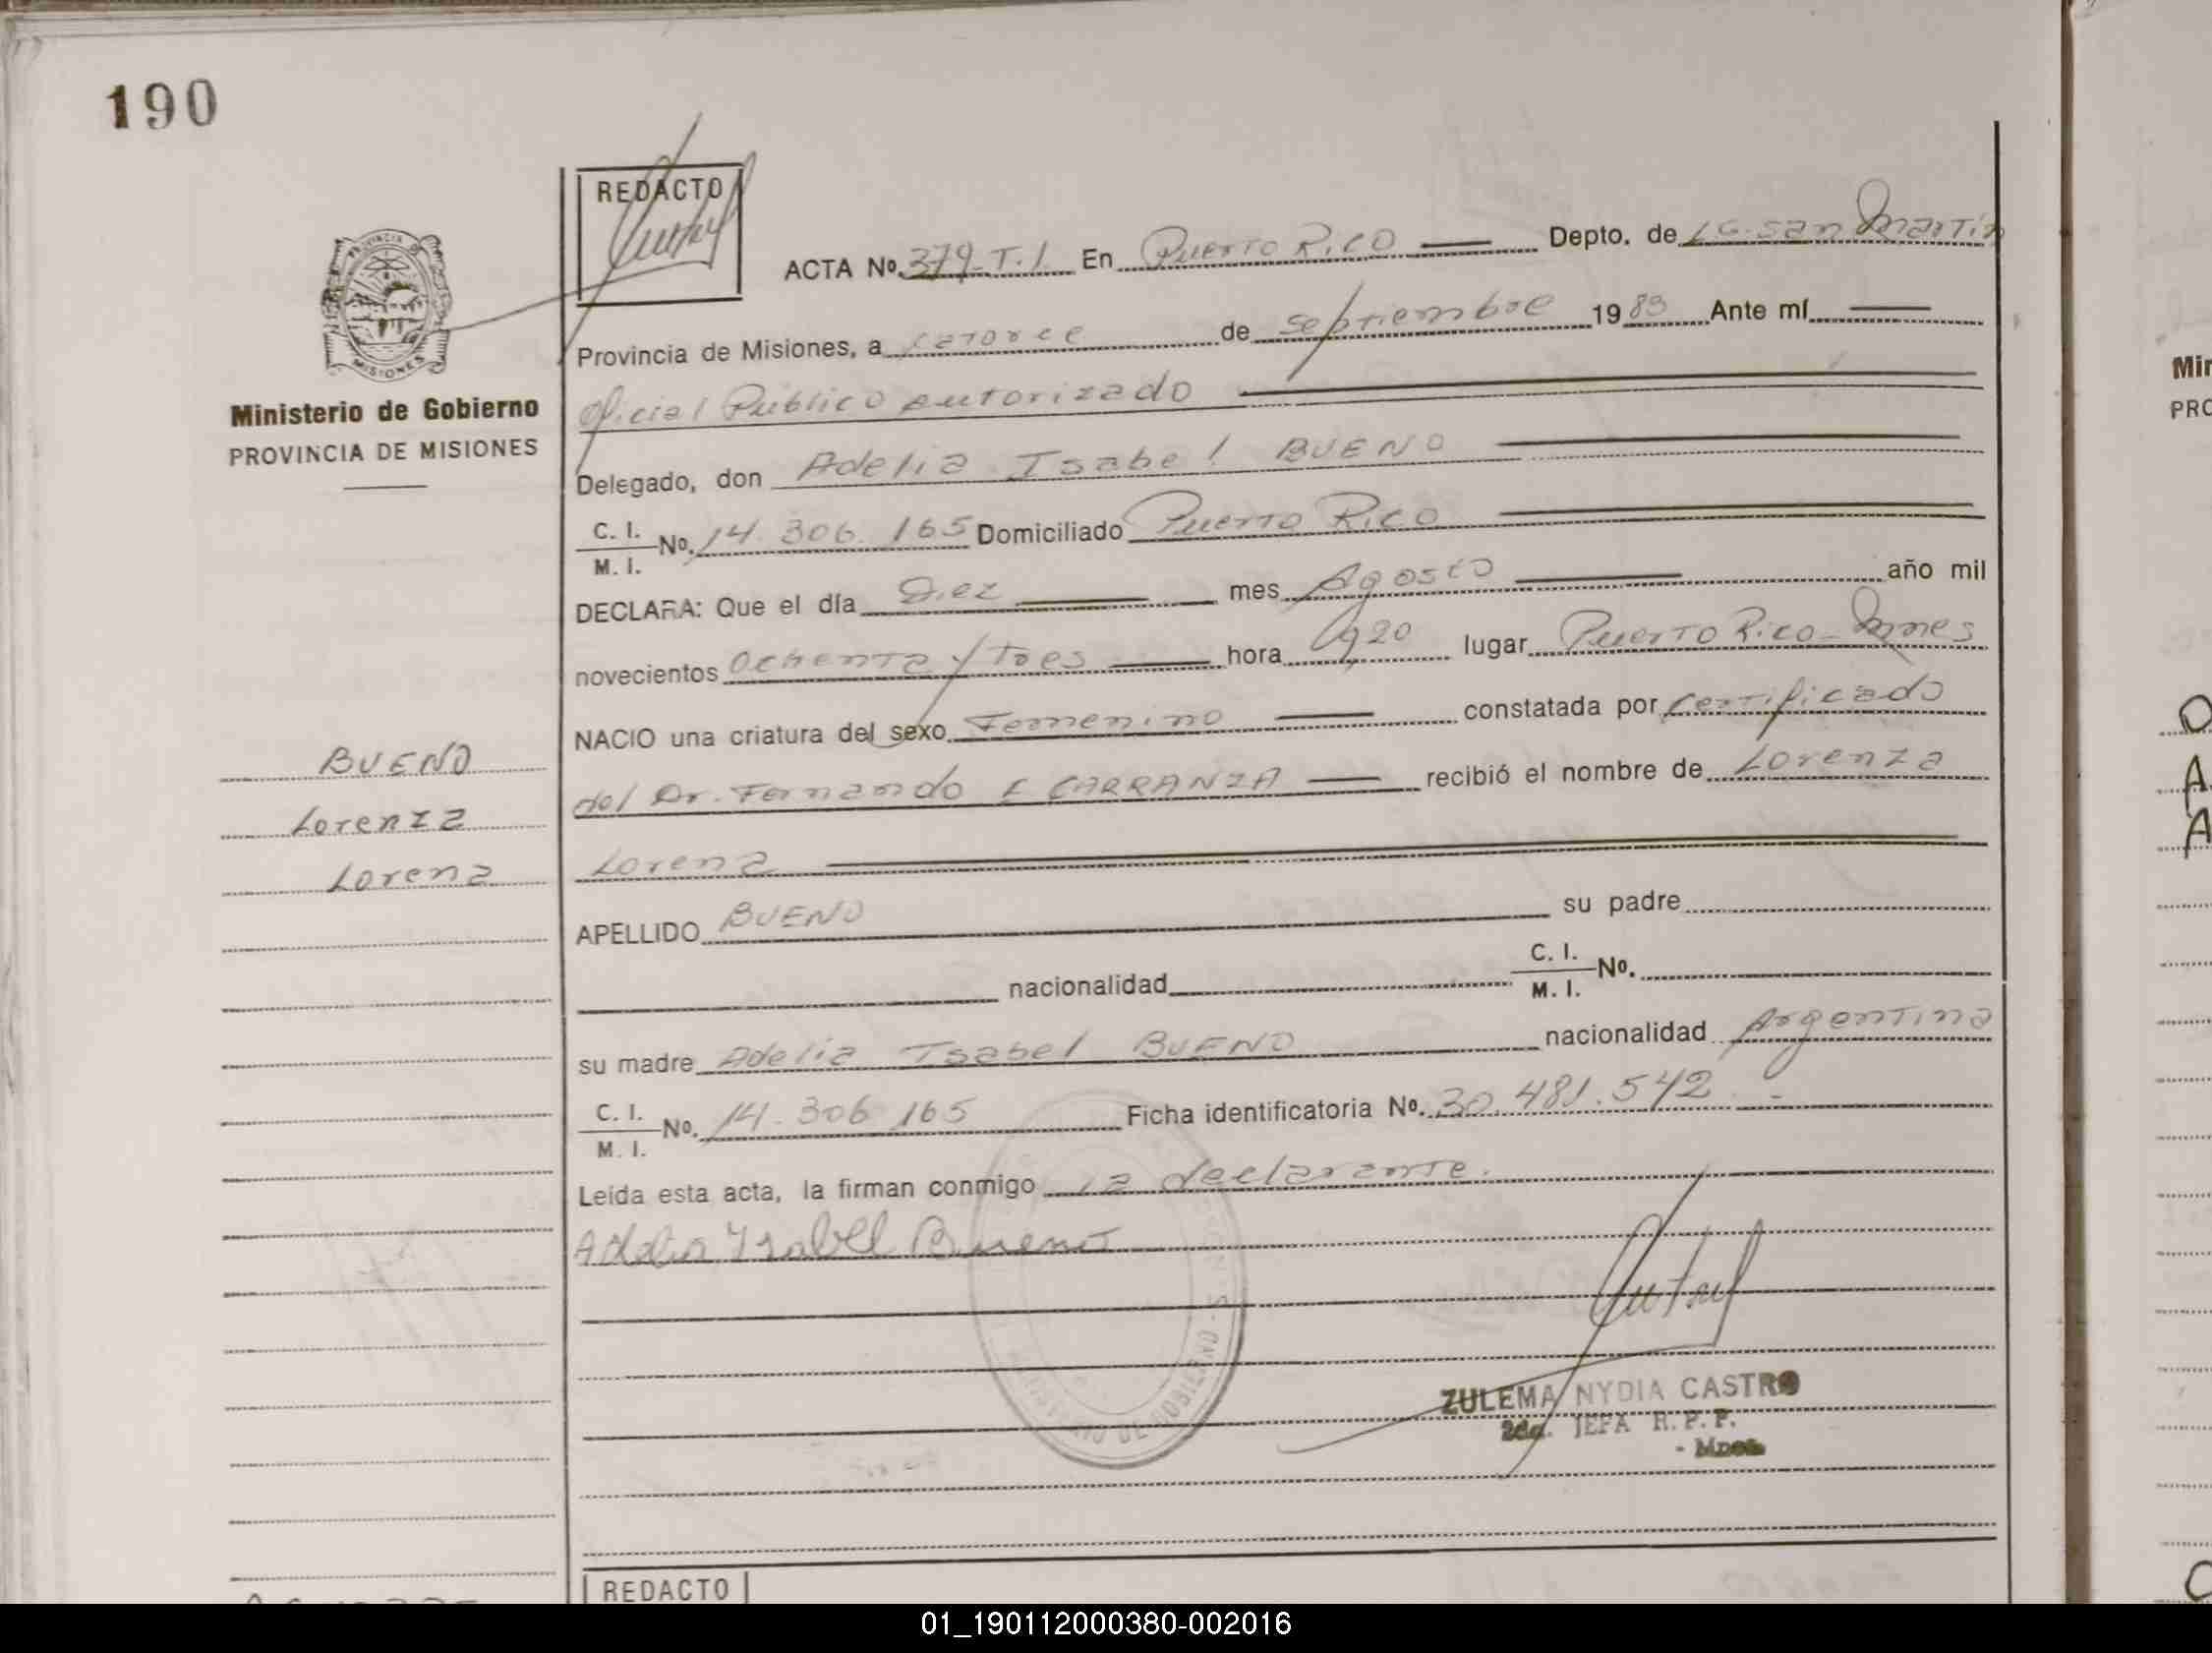 190
REDACTO
ACTA Nº 379-T.I. En Puerto Rico Depto. de LG. San Martín
Provincia de Misiones, a catorce de septiembre 1983 Ante mí
Oficial Público autorizado
Delegado, don Adelia Isabel BUENO
C. I. / M. I. Nº. 14.306.165 Domiciliado Puerto Rico
DECLARA: Que el día Diez mes Agosto año mil
novecientos Ochenta y tres hora 9,20 lugar Puerto Rico-Mnes
NACIO una criatura del sexo Femenino constatada por certificado
del Dr. Fernando E CARRANZA recibió el nombre de Lorenza
Lorena
APELLIDO BUENO su padre
nacionalidad C. I. / M. I. Nº.
su madre Adelia Isabel BUENO nacionalidad Argentina
C. I. / M. I. Nº. 14.306.165 Ficha identificatoria Nº. 30.481.542
Leida esta acta, la firman conmigo la declarante.
Adelia Ysabel Bueno
ZULEMA NYDIA CASTRO
2da. JEFA R. P. P.
- Mnes
REDACTO
MISIONES
Ministerio de Gobierno
PROVINCIA DE MISIONES
BUENO
Lorenza
Lorena
Min
PRO
01_190112000380-002016